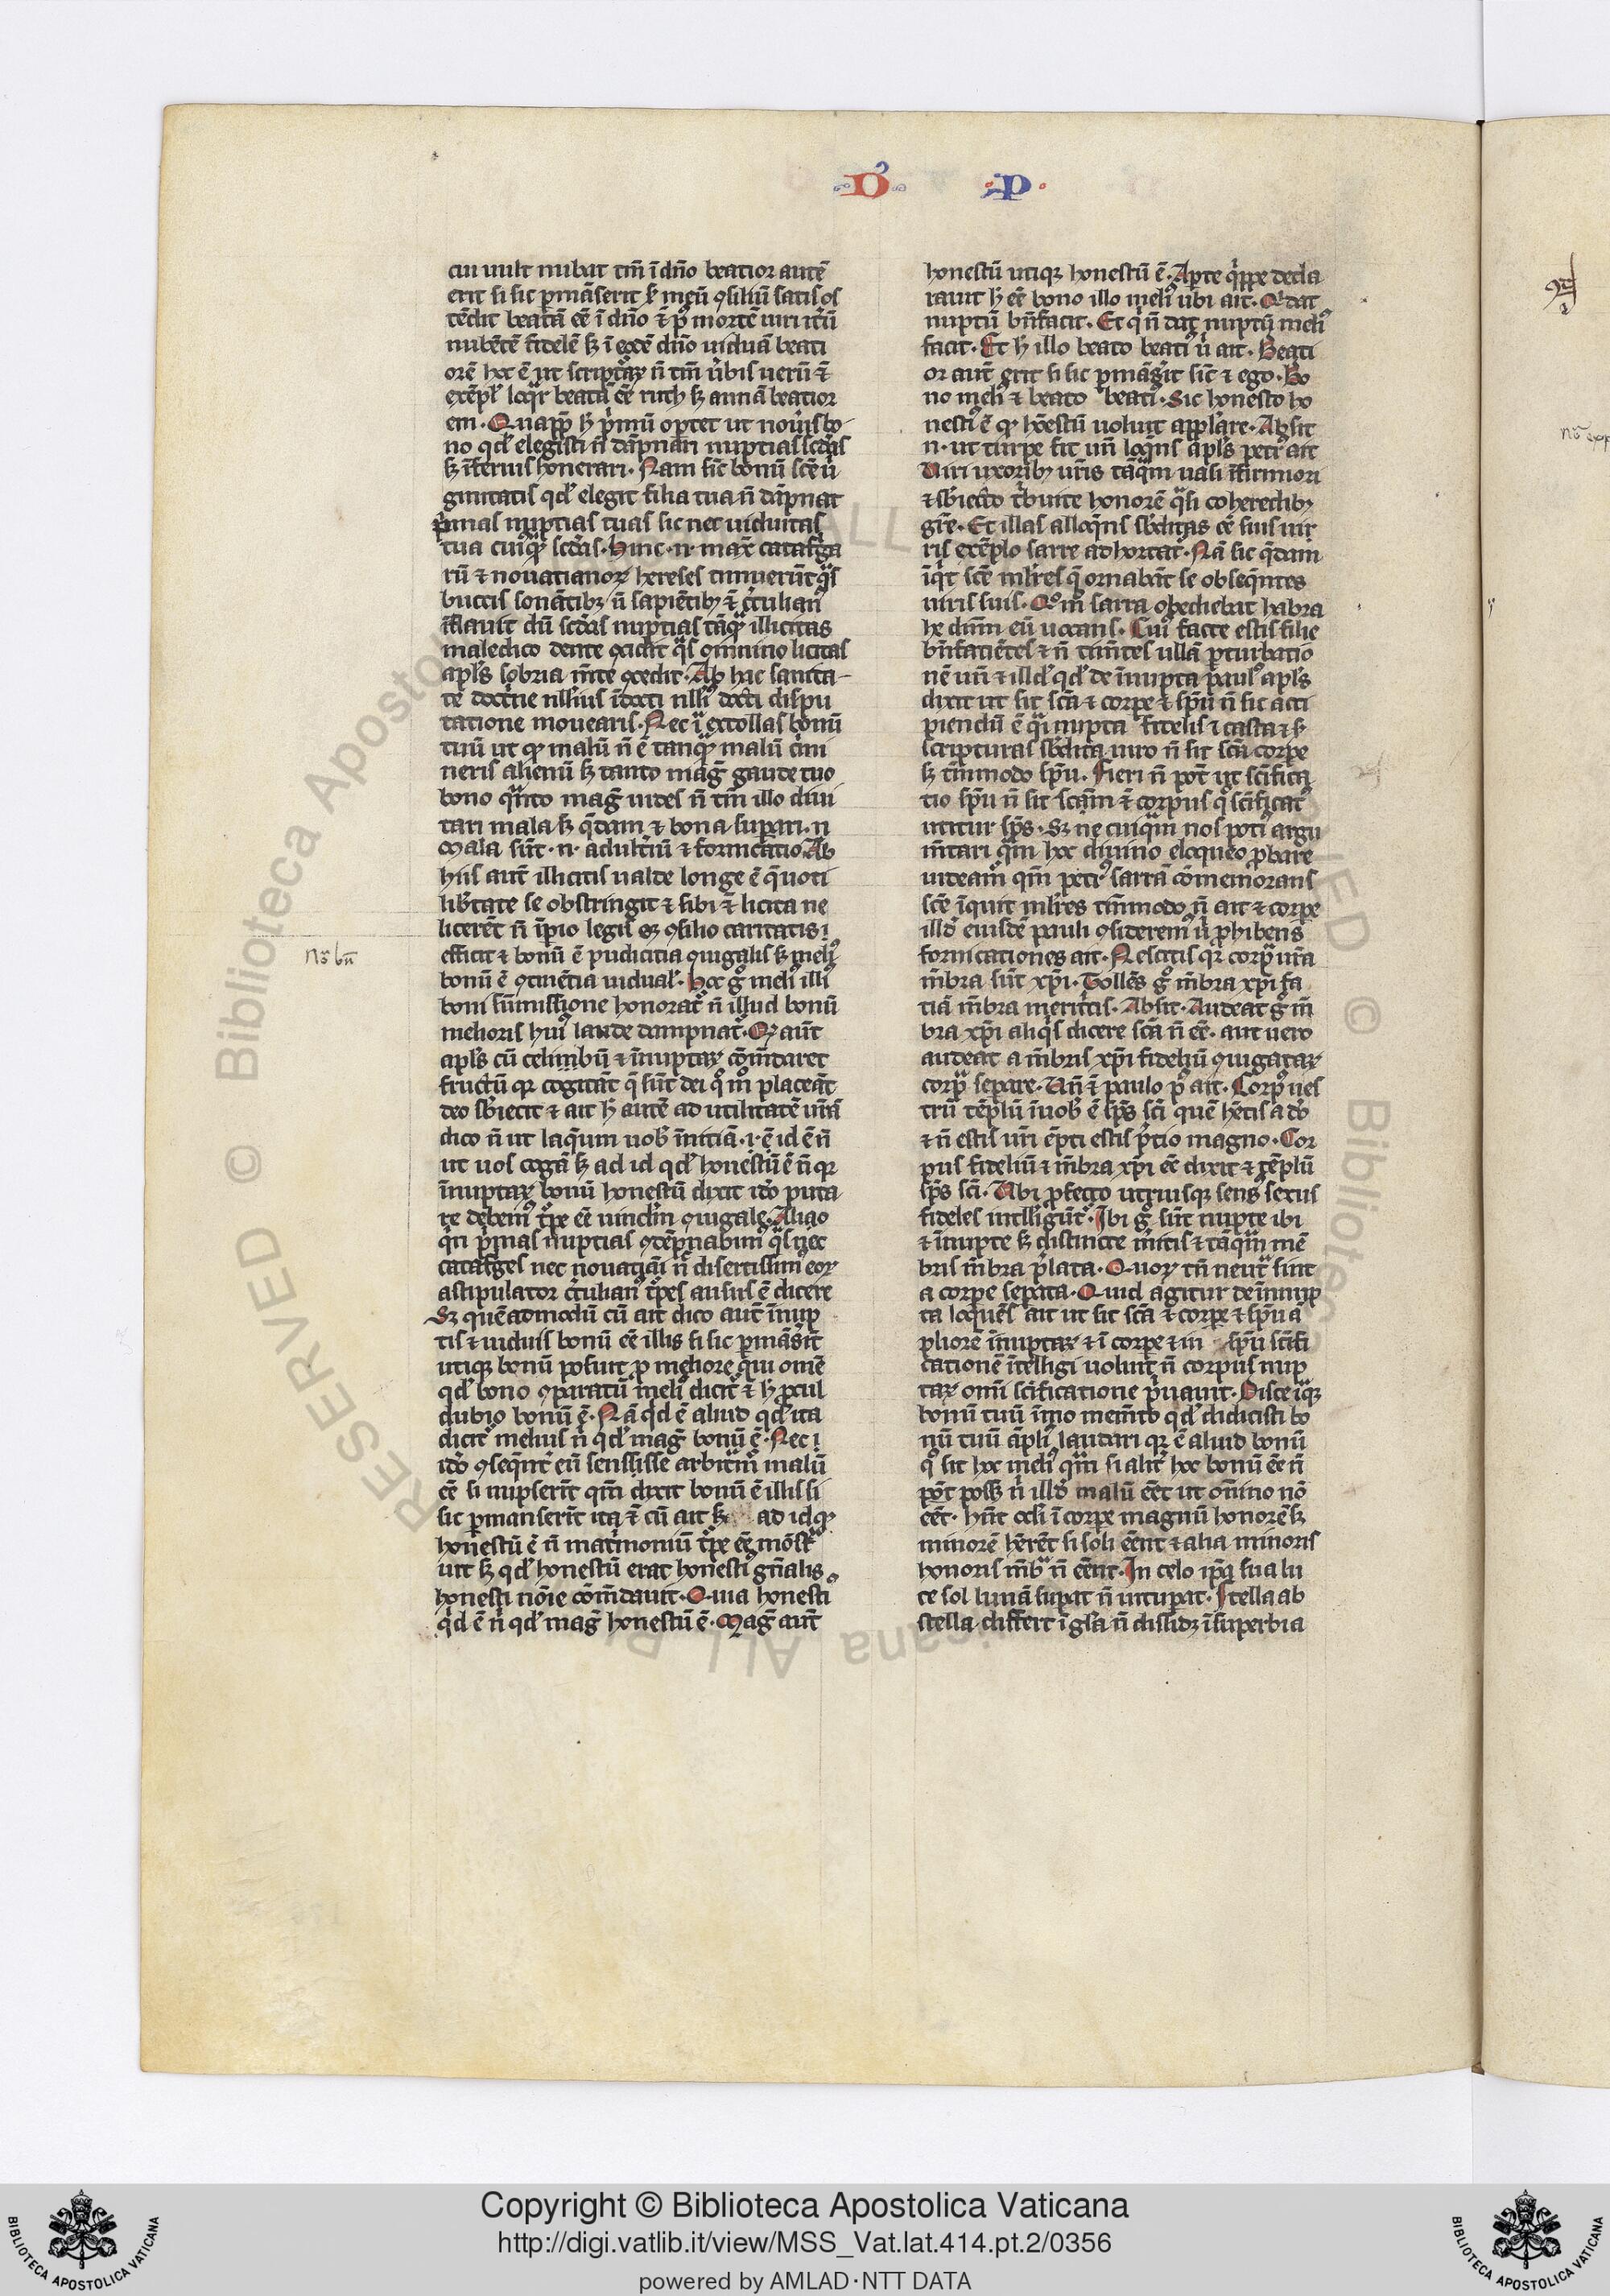 D' P
cui uult nubat tm̄ ī dn̄o beatior autē
erit si sic ꝑmāserit ẜm meū ꝯsiliū satis os
tēdit beatā eē ī dn̄o ⁊ p9 mortē uiri itͥū
nubētē fidelē sꝫ ī eodē dn̄o uiduā beati
orē hoc ē ut scriptaꝝ n̄ tm̄ ūbis uerū ⁊
exēpl' loqr beatā eē ruth sꝫ annā beatior
em. Quapp̄ h͛ pͥmū optet ut noūis bo
no qd' elegisti n̄ dāpnari nuptias scdās
sꝫ īferius honerari. Nam sic bonū scē ū
ginitatis qd' elegit filia tua n̄ dāpnat
pͥmas nuptias tuas sic nec uiduitas
tua cuiqꝫ scdās. Hinc .n. max̄ catafͥga
rū ⁊ nouatianoꝝ hereses tumuerūt qͣs
buccis sonātibꝫ n̄ sapiētibꝫ ⁊ tͥtulian9
īflauit dū scdās nuptias tāqͣꝫ illicitas
maledico dente ꝯcidit qͣs omnino licitas
apl's sobria m̄te ꝯcedit. Ab hac sanita
te doctͥne null'ius īdocti null'i9 docti dispu
tatione mouearis. Nec ita extollas bonū
tuū ut qͣꝫ malū n̄ ē tanqͣꝫ malū cͥmi
neris alienū sꝫ tanto maḡ gaude tuo
bono qͣnto maḡ uides n̄ tm̄ illo diui
tari mala sꝫ qͥdam ⁊ bona suꝑari. n
Mala sūt .n. adultͥiū ⁊ fornicatio. Ab
hiis aut̄ illicitis ualde longe ē q̄ uoti
lib̄tate se obstringit ⁊ sibi ⁊ licita ne
licerēt n̄ īꝑio legis sꝫ ꝯsilio caritatis
efficit ⁊ bonū ē pudicitia ꝯiugalis sꝫ meli9
bonū ē ꝯtinētia uidual'. Hoc gͦ meli9 illi9
boni sūmissione honorat᷑ n̄ illud bonū
melioris hui9 laude dampnat᷑. Qꝫ aut̄
apl's cū celimbū ⁊ īnuptaꝝ cōm̄daret
fructū qꝫ cogitāt q̄ sūt dei qͦmͦ placeāt
deo sb̄iecit ⁊ ait h͛ autē ad utilitatē ūrā
dico n̄ ut laq̄um uob̄ īnitiā .i. ē id ē n̄
ut uos cogā sꝫ ad id qd' honestū ē n̄ qꝫ
īnuptaꝝ bonū honestū dixit ido puta
re debem9 tͥpe eē uinclm̄ ꝯiugale. Alioq
qͥn pͥmas nuptias ꝯtēpnabim9 qͣs nec
catafͥges nec nouatiani n̄ disertissim9 eoꝝ
astipulator tͥtulian9 tͥpes ausus ē dicere
Sꝫ quēadmodū cū ait dico aut̄ īnup
tis ⁊ uiduis bonū eē illis si sic ꝑmāsit̄
utiqꝫ bonū posuit ꝓ meliore qͥui omē
qd' bono ꝯparatū meli9 dicit᷑ ⁊ h͛ ꝓcul
dubio bonū ē. Nā qd ē aliud qd' ita
dicit᷑ melius n̄ qd' maḡ bonū ē. Nec
ido ꝯseqn̄t᷑ eū sensisse arbitͥm̄ malū
eē si nupserīt qm̄ dixit bonū ē illis si
sic ꝑmanserīt ita ⁊ cū ait sꝫ ad id qꝫ
honestū ē n̄ matͥmoniū tͥpe eē mōstͣ
uit sꝫ qd' honestū erat honesti9 gn̄alis
honesti noīe cōm̄dauit. Quia honesti9
qͥd ē n̄ qd' maḡ honestū ē. Maḡ aut̄
honestū utiqꝫ honestū ē. Aꝑte qͥppe decla
rauit h͛ eē bono illo meli9 ubi ait. Qͥ dat
nuptū bn̄facit. Et qͥ n̄ dat nuptū meli9
facit. Et h͛ illo beato beati9 ū ait. Beati
or aut̄ erit si sic ꝑmāsit̄ sic ⁊ ego. Bo
no meli9 ⁊ beato beati9. Sic honesto ho
nesti9 ē qꝫ hōestū uoluit applāre. Absit
.n. ut turpe sit un̄ loqn̄s apl's petr9 ait
Uiri uxoribꝫ ūris tāqͣm uasi īfirmiori
⁊ sb̄iecto tͥbuite honorē qͣsi coheredibꝫ
gr̄e. Et illas alloqn̄s sb̄ditas eē suis uir
ris exēplo sarre adhortat᷑. Nā sic qͥdam
īqͥt scē mlrēs q̄ ornabāt se obseqn̄tes
uiris suis. Qͦ mͦ sarra obediebat habra
he dnm̄ eū uocans. Cui9 facte estis filie
bn̄fatiētes ⁊ n̄ timn̄tes ullā ꝑturbatio
nē un̄ ⁊ illd' qd' de īnupta paul9 apl's
dixit ut sit scā ⁊ corpe ⁊ sp̄u n̄ sic acci
piendū ē qͣi nupta fidelis ⁊ casta ⁊ ẜm
scripturas sb̄dita uiro n̄ sit scā corpe
sꝫ tm̄modo sp̄u. Fieri n̄ pot̄ ut scīfica
tio sp̄u n̄ sit scām ⁊ corpus qͦ scīficat9
utitur sp̄s. Sꝫ ne cuiqͣm nos poti9 argu
m̄tari qͣm hoc diuino eloquio ꝓbare
uideam᷑ qm̄ petr9 sarrā cōmemorans
scē īquit mlrēs tm̄modo n̄ ait ⁊ corpe
illd' eiusdē pauli ꝯsiderem9 ū ꝓhibens
fornicationes ait. Nescitis qꝫ corpͣ ūra
m̄bra sūt xp̄i. Tollēs gͦ m̄bra xp̄i fa
tiā m̄bra meretͥcis. Absit. Audeat gͦ m̄
bra xp̄i aliqͥs dicere scā n̄ eē. aut uero
audeat a m̄bris xp̄i fideliū ꝯiugataꝝ
corpͣ separe. Un̄ ⁊ paulo pͦ ait. Corp9 ues
trū tēplū īuob̄ ē sp̄s sc̄i quē hētis a dō
⁊ n̄ estis ūri ēpti estis pͥtio magno. Cor
pus fideliū ⁊ m̄bra xp̄i eē dixit ⁊ tēplū
sp̄s sc̄i. Ubi ꝓfecto utriusqꝫ sens9 sexus
fideles intlligūt᷑. Ibi gͦ sūt nupte ibi
⁊ īnupte sꝫ distincte m̄itis ⁊ tāqͣm mē
bris m̄bra p̄lata. Quoꝝ tn̄ neut᷑ sint
a corpe seꝑata. Quid agitur de īnnup
ta loquēs ait ut sit scā ⁊ corpe ⁊ sp̄u ā
pliorē īnuptaꝝ ⁊ ī corpe ⁊ in sp̄u scīfi
cationē ītelligi uoluit n̄ corpus nup
taꝝ omī scīficatione pͥuauit. Disce itaqꝫ
bonū tuū īmo mem̄to qd' didicisti bo
nū tuū āpli9 laudari qꝫ ē aliud bonū
qͦ sit hoc meli9 qͣm si alit᷑ hoc bonū eē n̄
pot̄ poss̄ n̄ illd' malū eēt ut omnino nō
eēt. hn̄t ocl'i ī corpe magnū honorē sꝫ
minorē hērēt si soli eēnt ⁊ alia minoris
honoris m̄bͣ n̄ eēnt. In celo ipo sua lu
ce sol lunā suꝑat n̄ uituꝑat. Stella ab
stella differt ī gl'a n̄ dissidꝫ īsuperbia
no bn̄
Copyright © Biblioteca Apostolica Vaticana
http://digi.vatlib.it/view/MSS_Vat.lat.414.pt.2/0356
powered by AMLAD·NTT DATA
BIBLIOTECA APOSTOLICA VATICANA
BIBLIOTECA APOSTOLICA VATICANA